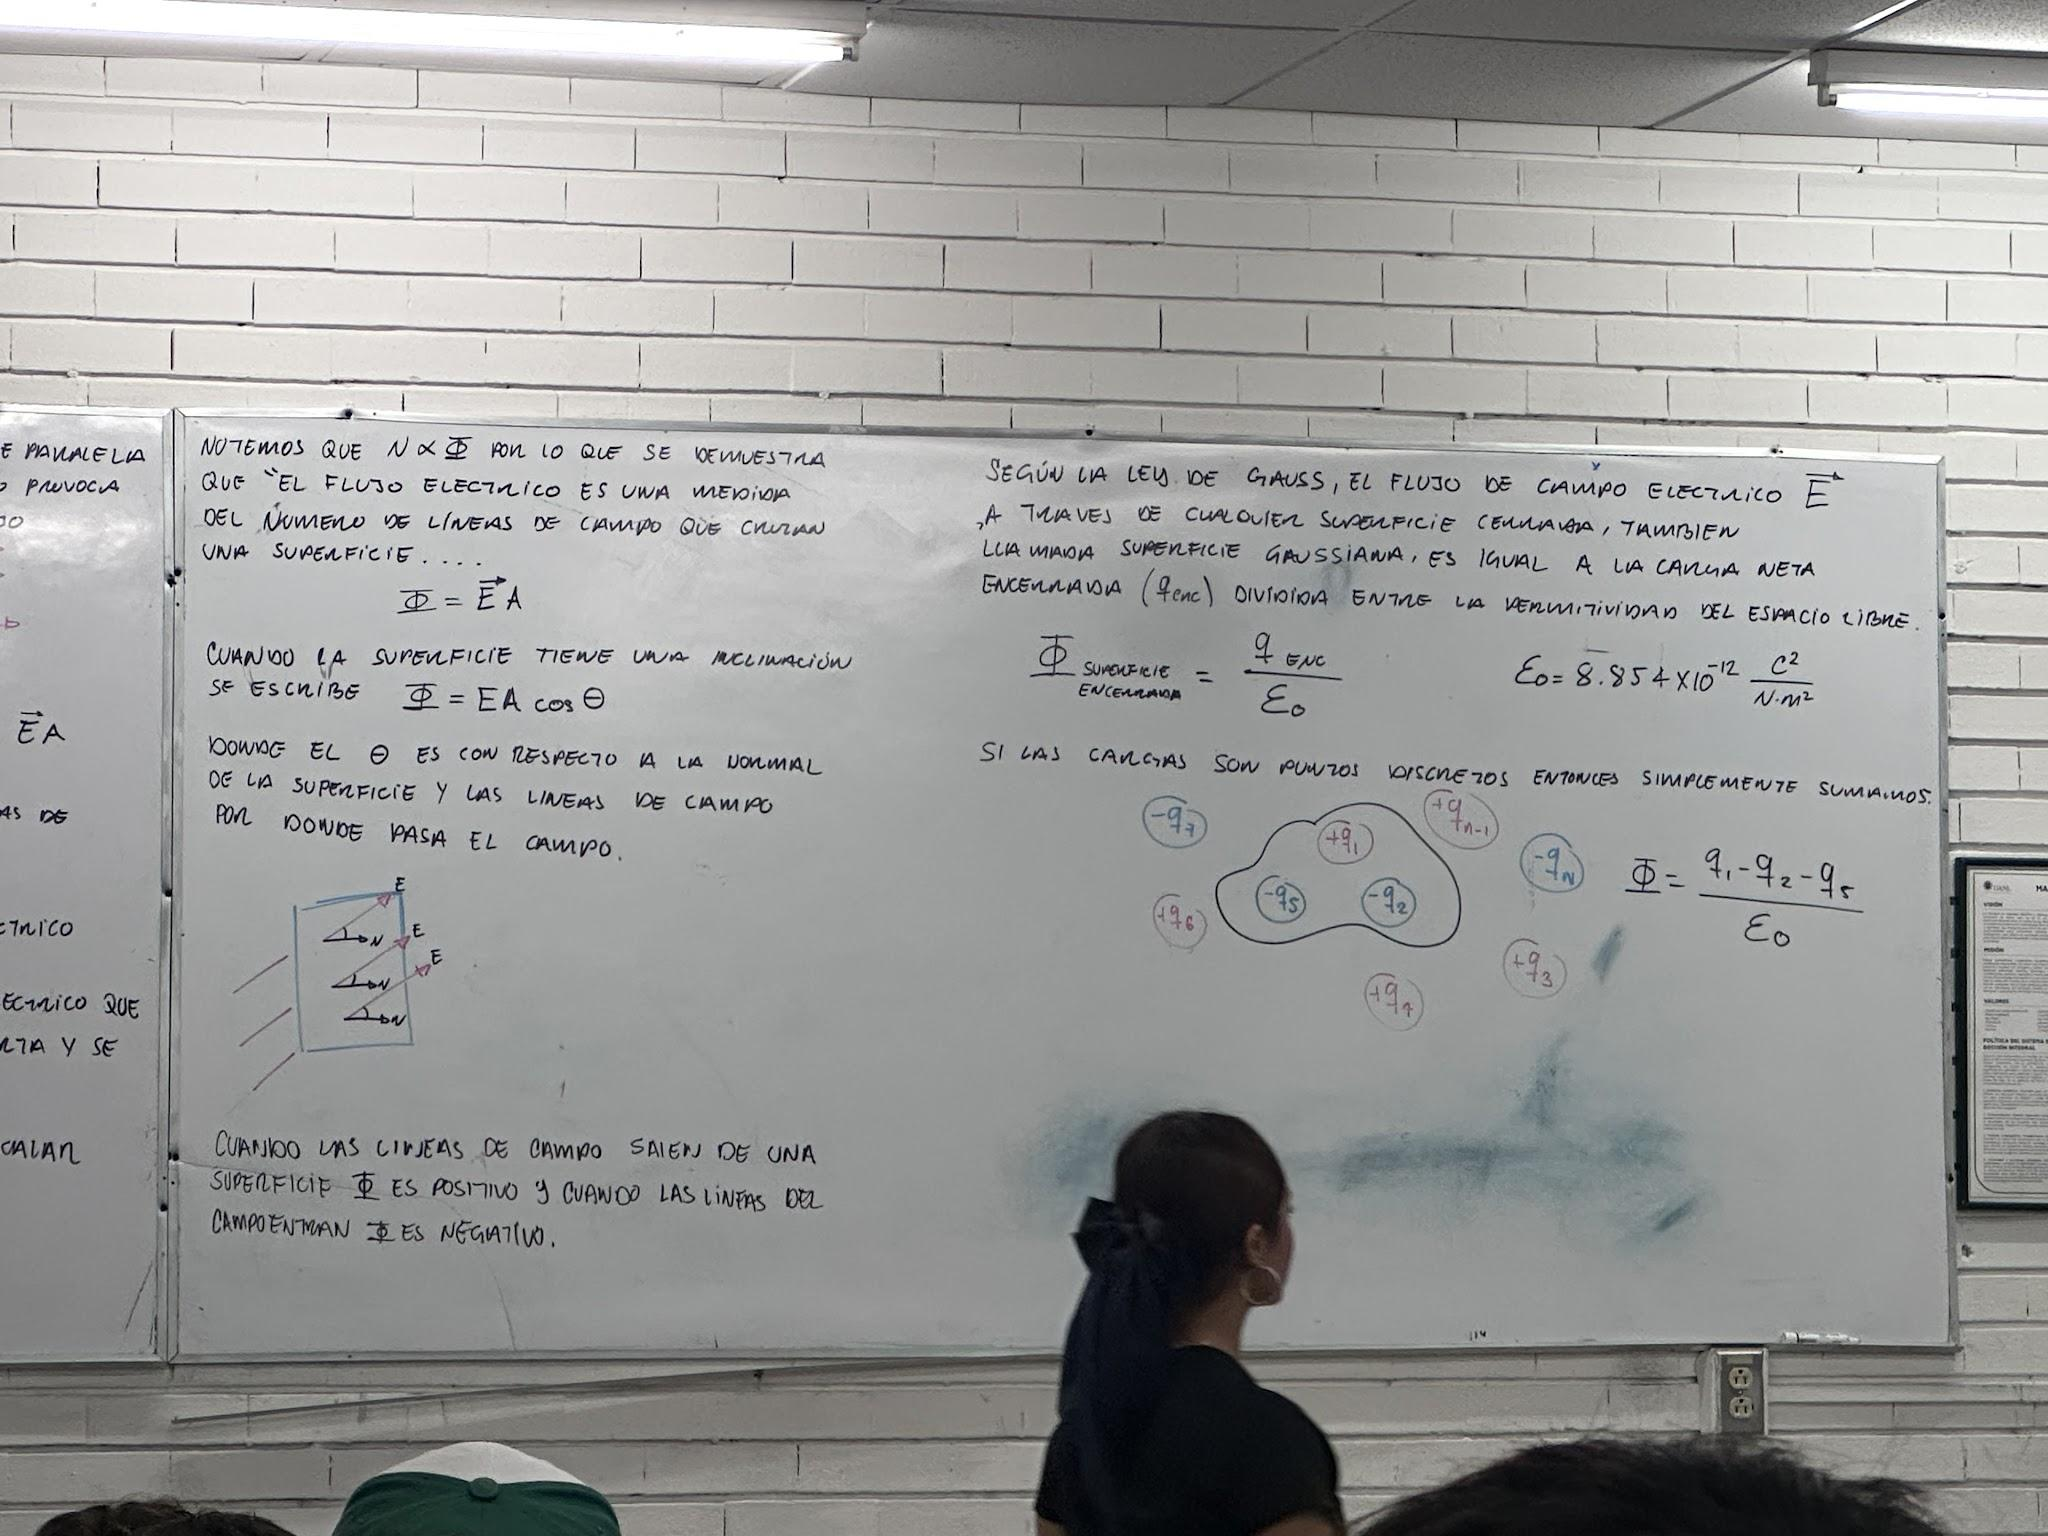 E PARALELA
PROVOCA
EA
AS DE
CTRICO
ECTRICO QUE
RTA Y SE
CALAR
NOTEMOS QUE N ∝ Φ POR LO QUE SE DEMUESTRA
QUE "EL FLUJO ELECTRICO ES UNA MEDIDA
DEL NUMERO DE LÍNEAS DE CAMPO QUE CRUZAN
UNA SUPERFICIE....
Φ = E⃗ A
CUANDO LA SUPERFICIE TIENE UNA INCLINACIÓN
SE ESCRIBE Φ = EA cos θ
DONDE EL θ ES CON RESPECTO A LA NORMAL
DE LA SUPERFICIE Y LAS LINEAS DE CAMPO
POR DONDE PASA EL CAMPO.
E
N E
N E
N
CUANDO LAS LINEAS DE CAMPO SALEN DE UNA
SUPERFICIE Φ ES POSITIVO Y CUANDO LAS LINEAS DEL
CAMPO ENTRAN Φ ES NEGATIVO.
SEGÚN LA LEY DE GAUSS, EL FLUJO DE CAMPO ELECTRICO E⃗
,A TRAVES DE CUALQUIER SUPERFICIE CERRADA, TAMBIEN
LLAMADA SUPERFICIE GAUSSIANA, ES IGUAL A LA CARGA NETA
ENCERRADA (q enc) DIVIDIDA ENTRE LA PERMITIVIDAD DEL ESPACIO LIBRE.
Φ SUPERFICIE ENCERRADA = q ENC / ε₀
ε₀ = 8.854 x 10⁻¹² C² / N·m²
SI LAS CARGAS SON PUNTOS DISCRETOS ENTONCES SIMPLEMENTE SUMAMOS.
-q₇ +q₁ +qₙ₋₁
-q₅ -q₂ -q_N
+q₆ +q₃
+q₄
Φ = q₁ - q₂ - q₅ / ε₀
UANL
VISIÓN
MISIÓN
VALORES